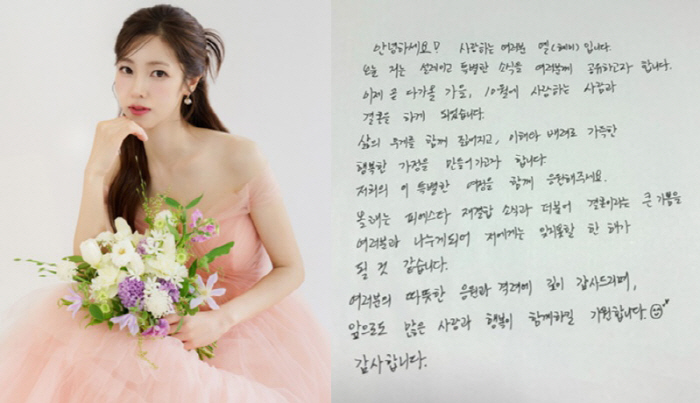 안녕하세요? 사랑하는 여러분 옐(혜미)입니다.
오늘 저는 설레이고 특별한 소식을 여러분께 공유하고자 합니다.
이제 곧 다가올 가을, 10월에 사랑하는 사람과
결혼을 하게 되었습니다.
삶의 무게를 함께 짊어지고, 이해와 배려로 가득한
행복한 가정을 만들어가고자 합니다.
저희의 이 특별한 여정을 함께 응원해주세요.
올해는 피에스타 재결합 소식과 더불어 결혼이라는 큰 기쁨을
여러분과 나누게되어 저에게는 잊지못할 한 해가
될 것 같습니다.
여러분의 따뜻한 응원과 격려에 깊이 감사드리며,
앞으로도 많은 사랑과 행복이 함께하길 기원합니다
감사합니다.